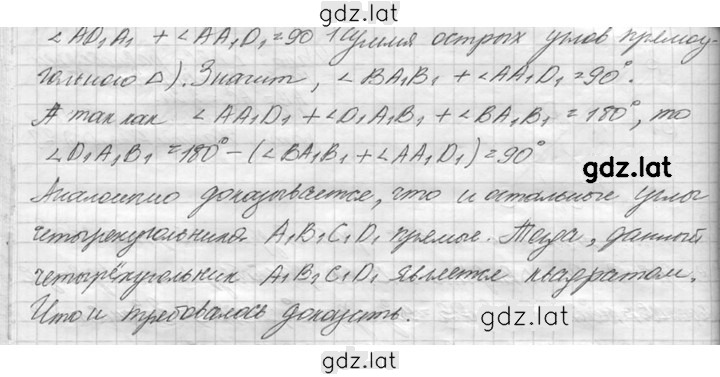 gdz.lat
∠AD₁A₁ + ∠AA₁D₁ = 90° (сумма острых углов прямоу-
гольного Δ). Значит, ∠BA₁B₁ + ∠AA₁D₁ = 90°.
А так как ∠AA₁D₁ + ∠D₁A₁B₁ + ∠BA₁B₁ = 180°, то
∠D₁A₁B₁ = 180° - (∠BA₁B₁ + ∠AA₁D₁) = 90°
gdz.lat
Аналогично доказывается, что и остальные углы
четырехугольника A₁B₁C₁D₁ прямые. Тогда, данный
четырехугольник A₁B₁C₁D₁ является квадратом.
Что и требовалось доказать.
gdz.lat
gdz.lat